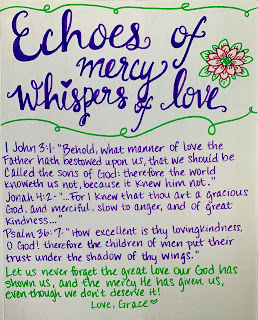 Echoes of
mercy
whispers of love
1 John 3:1- "Behold, what manner of love the
Father hath bestowed upon us, that we should be
called the sons of God: therefore the world
knoweth us not, because it knew him not."
Jonah 4:2- "...For I knew that thou art a gracious
God, and merciful, slow to anger, and of great
kindness..."
Psalm 36:7- "How excellent is thy lovingkindness,
O God! therefore the children of men put their
trust under the shadow of thy wings."
Let us never forget the great love our God has
shown us, and the mercy He has given us,
even though we don't deserve it!
Love, Grace♡